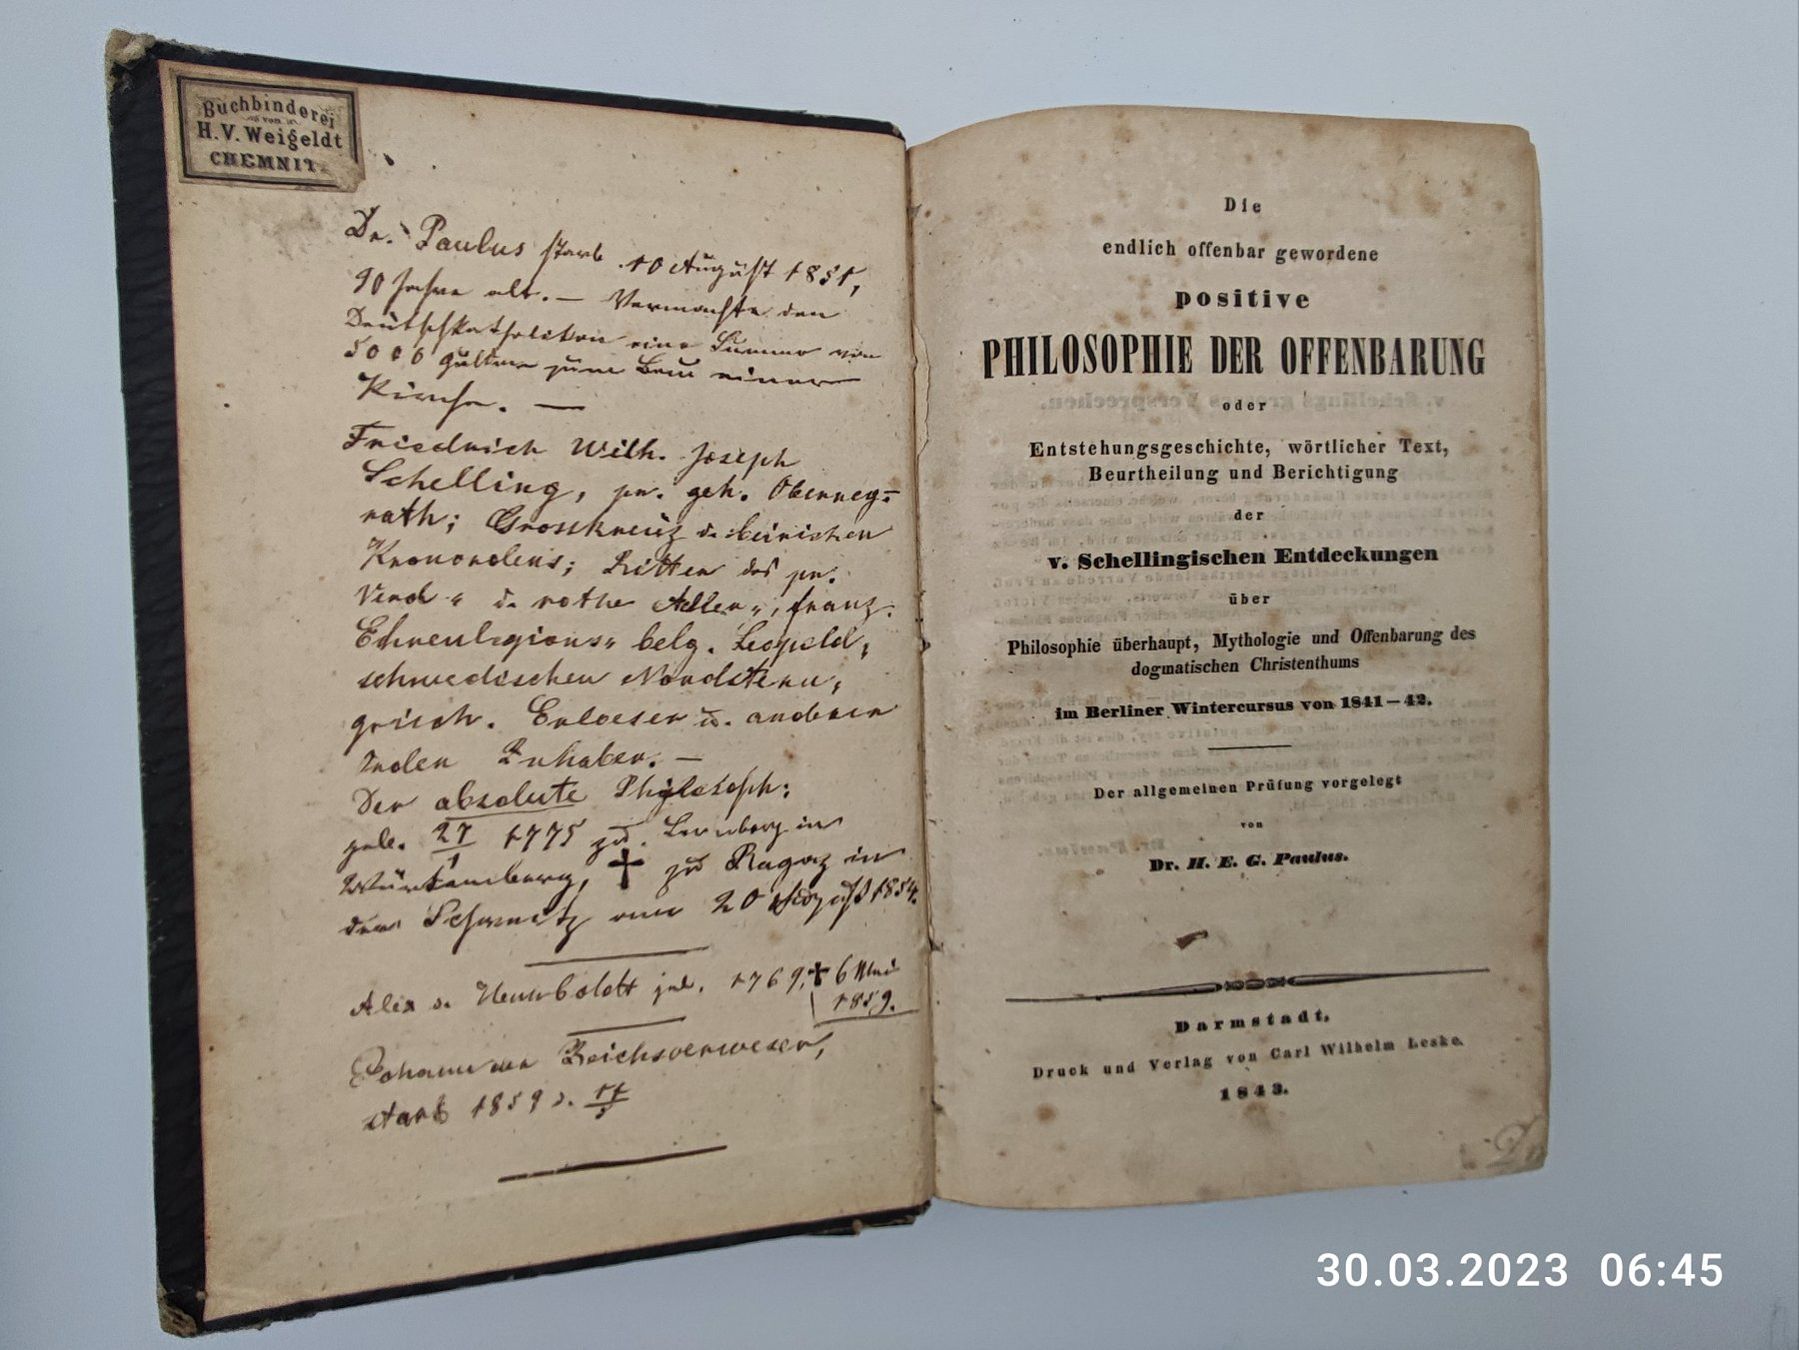 Buchbinderei
von
H. V. Weigeldt
CHEMNIT
Dr. Paulus starb 10 August 1851,
90 Jahre alt. — Vermachte den
Deutschkatholiken eine Summe von
5000 Gulden zum Bau einer
Kirche. —
Friedrich Wilh. Joseph
Schelling, pr. geh. Oberreg=
rath; Grosskreuz d. bairischen
Kronordens; Ritter des pr.
Verd " d. rothe Adler ", franz.
Ehrenlegions " belg. Leopold,
schwedischen Nordstern,
griech. Erloeser u. anderer
Orden Inhaber. —
Der absolute Philosoph:
geb. 27/1 1775 zu Leonberg in
Würtemberg, † zu Ragaz in
der Schweitz am 20 August 1854.
Alex v. Humboldt geb. 1769, † 6 Mai
1859.
Johann der Reichsverweser,
starb 1859 d. 11/5
Die
endlich offenbar gewordene
positive
PHILOSOPHIE DER OFFENBARUNG
oder
Entstehungsgeschichte, wörtlicher Text,
Beurtheilung und Berichtigung
der
v. Schellingischen Entdeckungen
über
Philosophie überhaupt, Mythologie und Offenbarung des
dogmatischen Christenthums
im Berliner Wintercursus von 1841—42.
Der allgemeinen Prüfung vorgelegt
von
Dr. H. E. G. Paulus.
Darmstadt,
Druck und Verlag von Carl Wilhelm Leske.
1843.
30.03.2023 06:45